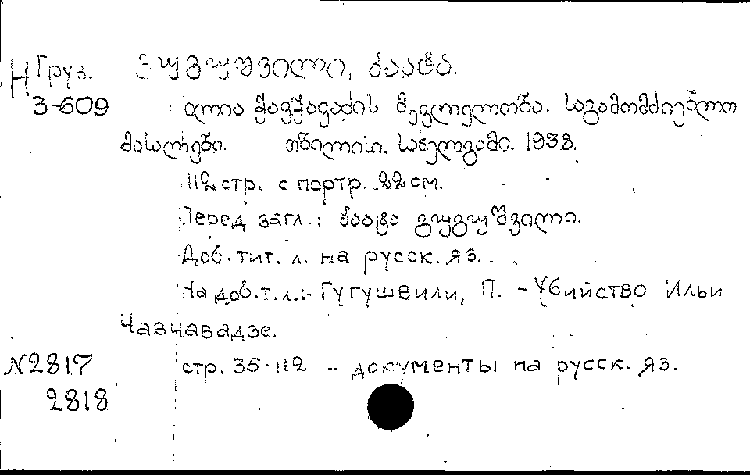 Н Груз. გუგუშვილი, პაატა.
3-609 ილია ჭავჭავაძის მკვლელობა. საგამომძიებლო
მასალები. თბილისი. სახელგამი. 1938.
112 стр. с портр. 22 см.
Перед загл.: პაატა გუგუშვილი.
Доб. тит. л. на русск. яз.
На доб. т. л.: Гугушвили, П. - Убийство Ильи
Чавчавадзе.
N2817 стр. 35-112 - документы на русск. яз.
2818